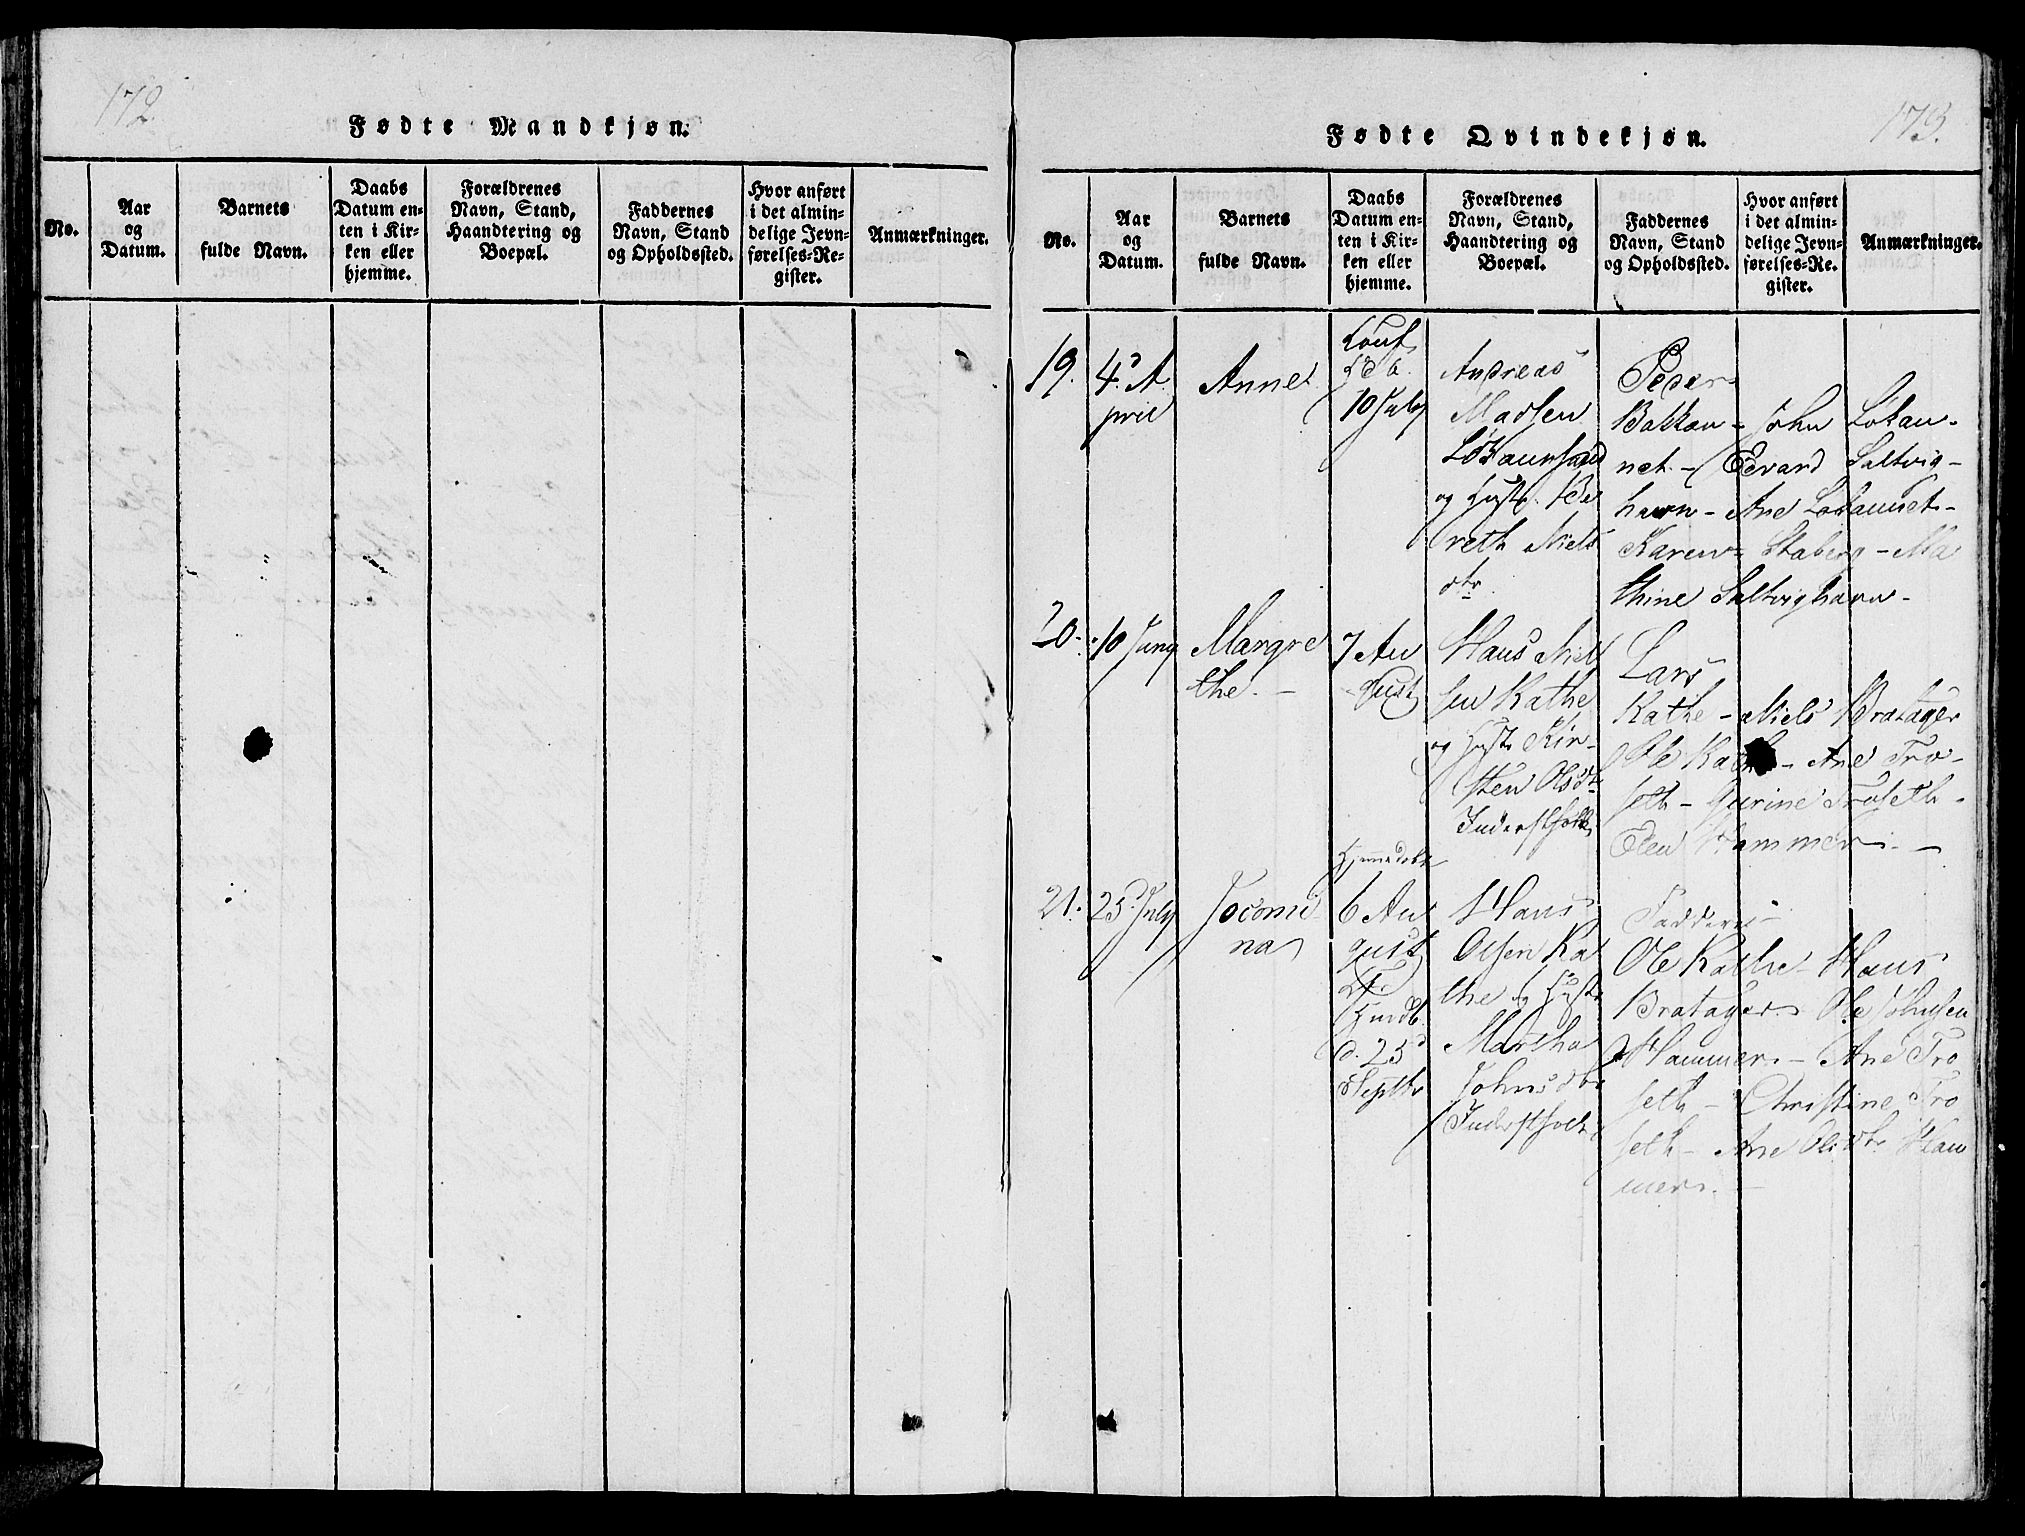 172.
Fødte Mandkjøn.
No.
Aar
og
Datum.
Barnets
fulde Navn.
Daabs
Datum en-
ten i Kir-
ken eller
hjemme.
Forældrenes
Navn, Stand,
Haandtering og
Boepæl.
Faddernes
Navn, Stand
og Opholdssted.
Hvor anført
i det almin-
delige Jevn-
førelses-Re-
gister.
Anmærkninger.
173.
Fødte Qvindekjøn.
No.
Aar
og
Datum.
Barnets
fulde Navn.
Daabs
Datum en-
ten i Kir-
ken eller
hjemme.
Forældrenes
Navn, Stand,
Haandtering og
Boepæl.
Faddernes
Navn, Stand
og Opholdssted.
Hvor anført
i det almin-
delige Jevn-
førelses-Re-
gister.
Anmærkninger.
19.
4d A
pril
Anne
10 July
Andreas
Madsen
og Hustr. Be
reth Niels
dtr.
Peder
Bakkau- John Lökau-
net- Evard Saltvig-
havn- Ane Lökaunet-
Karen Staberg- Ma
thine Saltvighavn-
20.
10 Juny
Margre
the.-
7 Au
gust
Hans Niel
sen Kathe
og Hustr Kir-
sten Olsdt
Inderstfolk
Lars
Kathe- Niels Bratager
Ole Kathe- Ane Tro-
seth- Gurine Troseth-
Elen Hammer.-
21.
25d July
Jocomi
na
Hjemmedøbt
6 Au
gust
d. 25d
Septbr
Hans
Olsen Ka
the og Hustr
Martha
Johnsdtr
Inderstfolk
Faddere-
Ole Kathe- Hans
Bratager- Ole Johnsen
Hammer- Ane Tro
seth- Christine Tro
seth- Ane Olsdtr Ham
mer.-